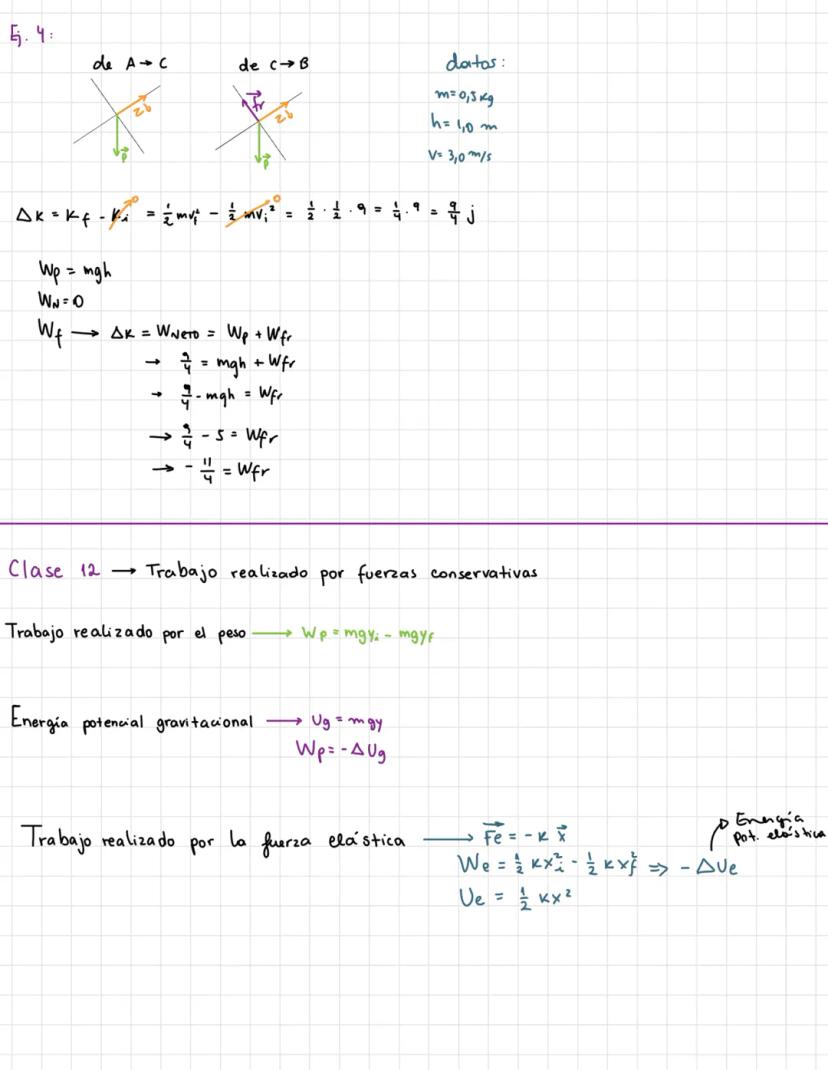 Ej. 4:
de A → C
de C → B
datos:
m = 0,5 kg
h = 1,0 m
v = 3,0 m/s
zb
p⃗
fr⃗
zb
p⃗
Δk = kf - ki↗0 = 1/2 mvf² - 1/2 mvi²↗0 = 1/2 · 1/2 · 9 = 1/4 · 9 = 9/4 j
Wp = mgh
WN = 0
Wf → Δk = WNETO = Wp + Wfr
→ 9/4 = mgh + Wfr
→ 9/4 - mgh = Wfr
→ 9/4 - 5 = Wfr
→ - 11/4 = Wfr
Clase 12 → Trabajo realizado por fuerzas conservativas
Trabajo realizado por el peso → Wp = mgyi - mgyf
Energía potencial gravitacional → Ug = mgy
Wp = - ΔUg
Energía
pot. elástica
Trabajo realizado por la fuerza elástica → Fe⃗ = - k x⃗
We = 1/2 kxi² - 1/2 kxf² ⇒ - ΔUe
Ue = 1/2 kx²